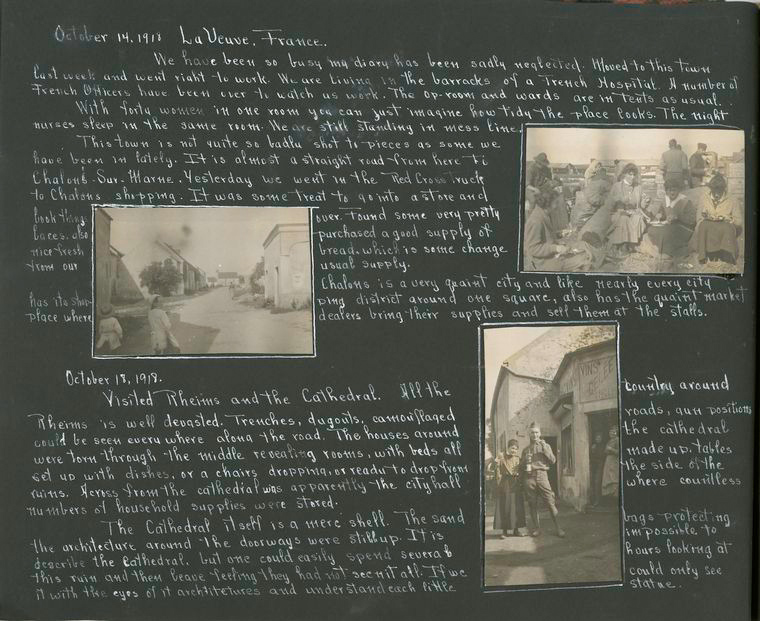 October 14, 1918 La Veuve, France.
We have been so busy my diary has been sadly neglected. Moved to this town
last week and went right to work. We are living in the barracks of a French Hospital. A number of
French Officers have been over to watch us work. The op-room and wards are in tents as usual.
With forty women in one room you can just imagine how tidy the place looks. The night
nurses sleep in the same room. We are still standing in mess line.
This town is not quite so badly shot to pieces as some we
have been in lately. It is almost a straight road from here to
Chalons-Sur-Marne. Yesterday we went in the Red Cross truck
to Chalons shopping. It was some treat to go into a store and
look things over. Found some very pretty
laces. also purchased a good supply of
nice fresh bread. which is some change
from our usual supply.
Chalons is a very quaint city and like nearly every city
has its shopping district around one square, also has the quaint market
place where dealers bring their supplies and sell them at the stalls.
October 18, 1918.
Visited Rheims and the Cathedral. All the country around
Rheims is well devasted. Trenches, dugouts, camouflaged roads, gun positions
could be seen every where along the road. The houses around the cathedral
were torn through the middle revealing rooms, with beds all made up. tables
set up with dishes, or a chairs dropping, or ready to drop from the side of the
ruins. Across from the cathedral was apparently the city hall where countless
numbers of household supplies were stored.
The Cathedral itself is a mere shell. The sand bags protecting
the architecture around the doorways were still up. It is impossible to
describe the Cathedral. but one could easily spend several hours looking at
this ruin and then leave feeling they had not seen it all. If we could only see
it with the eyes of it architetures and understand each little statue.
VINS